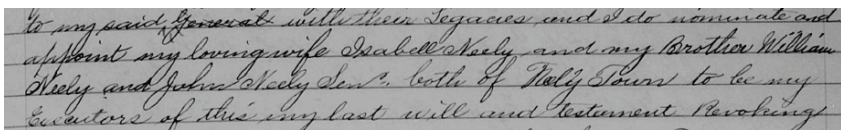 to my said General with their Legacies and I do nominate and
appoint my loving wife Isabell Neely and my Brother William
Neely and John Neely Senr. both of Holy Town to be my
Executors of this my last will and testement Revoking